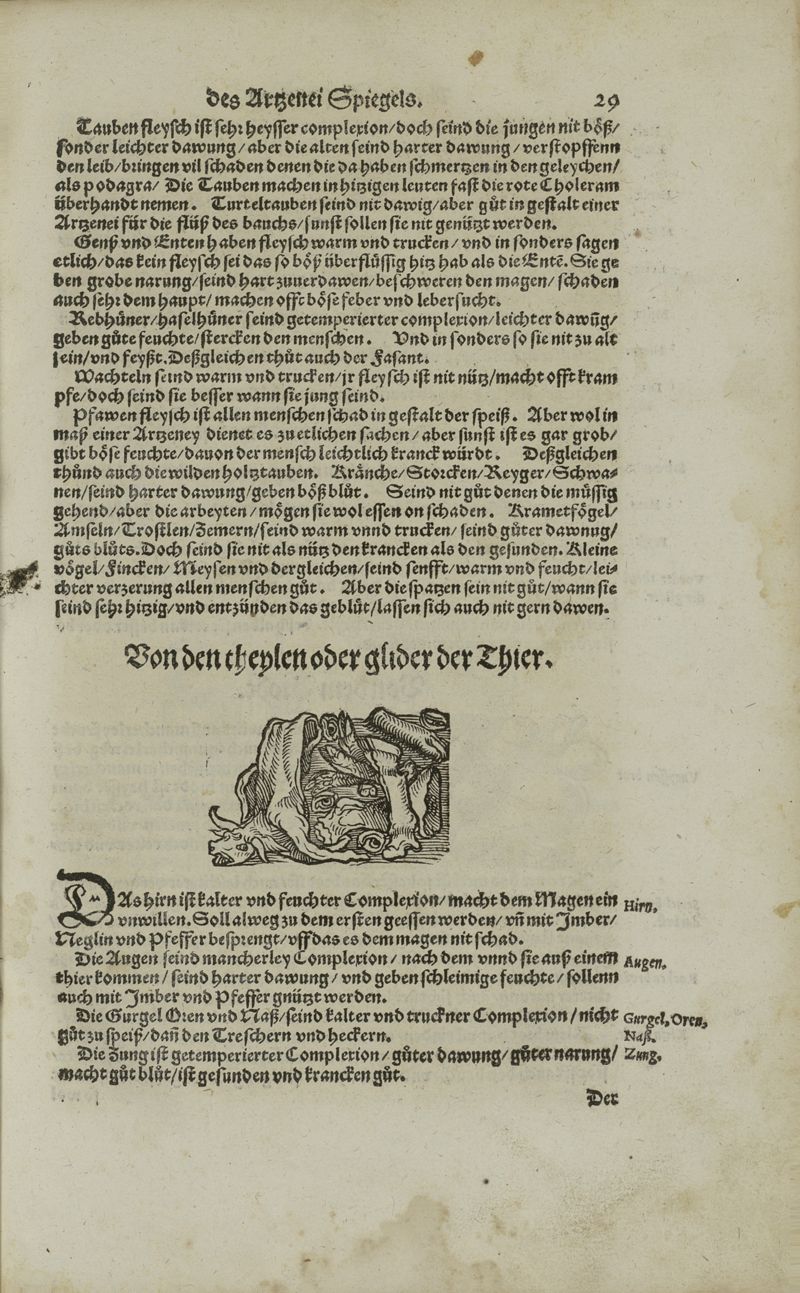 des Artzenei Spiegels. 29
Tauben fleysch ist sehr heysser complexion/doch seind die jungen nit böß/
sonder leichter dawung/aber die alten seind harter dawung/verstopffenn
den leib/bringen vil schaden denen die da haben schmertzen in den geleychen/
als podagra/ Die Tauben machen in hitzigen leuten fast die rote Choleram
überhandt nemen. Turteltauben seind nit dawig/aber gůt in gestalt einer
Artzenei für die flüß des bauchs/sunst sollen sie nit genützt werden.
Genß vnd Enten haben fleysch warm vnd trucken/vnd in sonders sagen
etlich/das kein fleysch sei das so böß überflüssig hitz hab als die Entē. Sie ge
ben grobe narung/seind hart zuuerdawen/beschweren den magen/schaden
auch sehr dem haupt/machen offt böse feber vnd lebersucht.
Rebhüner/haselhüner seind getemperierter complexion/leichter dawūg/
geben gůte feuchte/stercken den menschen. Vnd in sonders so sie nit zu alt
sein/vnd feyßt. Deßgleichen thůt auch der Fasant.
Wachteln seind warm vnd trucken/jr fleysch ist nit nütz/macht offt kram
pfe/doch seind sie besser wann sie jung seind.
Pfawen fleysch ist allen menschen schad in gestalt der speiß. Aber wol in
maß einer Artzeney dienet es zu etlichen sachen/aber sunst ist es gar grob/
gibt böse feuchte/dauon der mensch leichtlich kranck würdt. Deßgleichen
thůnd auch die wilden holtztauben. Kränche/Storcken/Reyger/Schwa-
nen/seind harter dawung/geben böß blůt. Seind nit gůt denen die müssig
gehend/aber die arbeyten/mögen sie wol essen on schaden. Krametßfögel/
Amseln/Trostlen/Zemern/seind warm vnnd trucken/seind gůter dawnug/
gůts blůts. Doch seind sie nit als nütz den krancken als den gesunden. Kleine
vögel/Fincken/Meysen vnd dergleichen/seind senfft/warm vnd feucht/lei-
chter verzerung allen menschen gůt. Aber die spatzen sein nit gůt/wann sie
seind sehr hitzig/vnd entzünden das geblůt/lassen sich auch nit gern dawen.
Von den theylen oder glider der Thier.
DAs hirn ist kalter vnd feuchter Complexion/macht dem Magen ein Hirn.
vnwillen. Soll alweg zu dem ersten geessen werden/vñ mit Jmber/
Neglin vnd Pfeffer besprengt/vff das es dem magen nit schad.
Die Augen seind mancherley Complexion/nach dem vnnd sie auß einem Augen.
thier kommen/seind harter dawung/vnd geben schleimige feuchte/sollenn
auch mit Jmber vnd Pfeffer gnützt werden.
Die Gurgel Oren vnd Naß/seind kalter vnd truckner Complexion/nicht Gurgel, Oren,
gůt zu speiß/dañ den Treschern vnd heckern. Naß.
Die Zung ist getemperierter Complexion/gůter dawung/gůter narung/ Zung.
macht gůt blůt/ist gesunden vnd krancken gůt.
Der